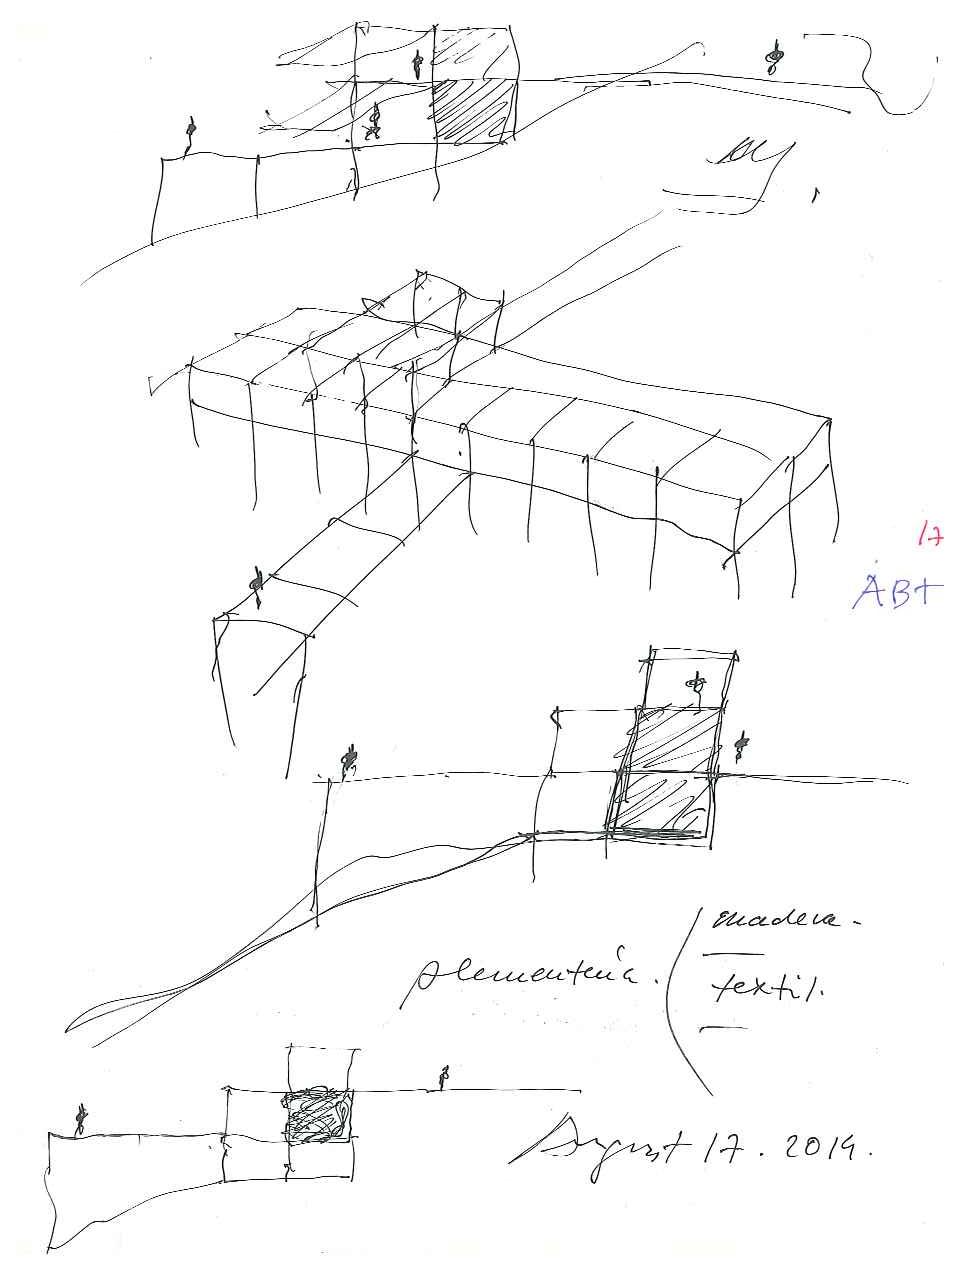 17
ABT
plementería.
madera.
textil.
August 17. 2019.